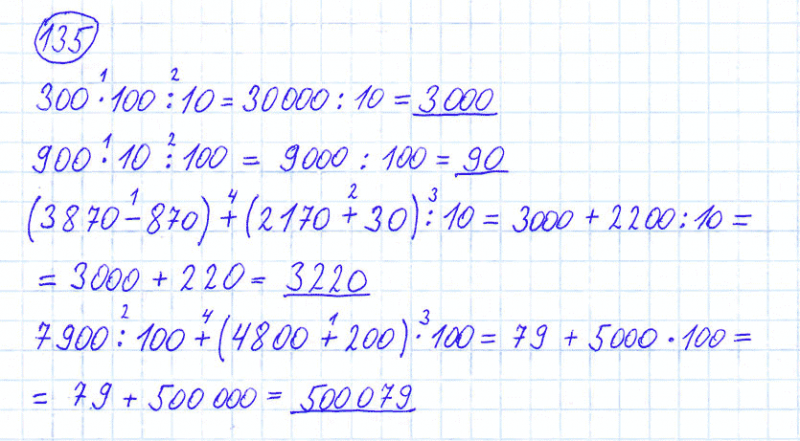 135
300 · 100 : 10 = 30000 : 10 = 3000
900 · 10 : 100 = 9000 : 100 = 90
(3870 - 870) + (2170 + 30) : 10 = 3000 + 2200 : 10 =
= 3000 + 220 = 3220
7900 : 100 + (4800 + 200) · 100 = 79 + 5000 · 100 =
= 79 + 500 000 = 500 079